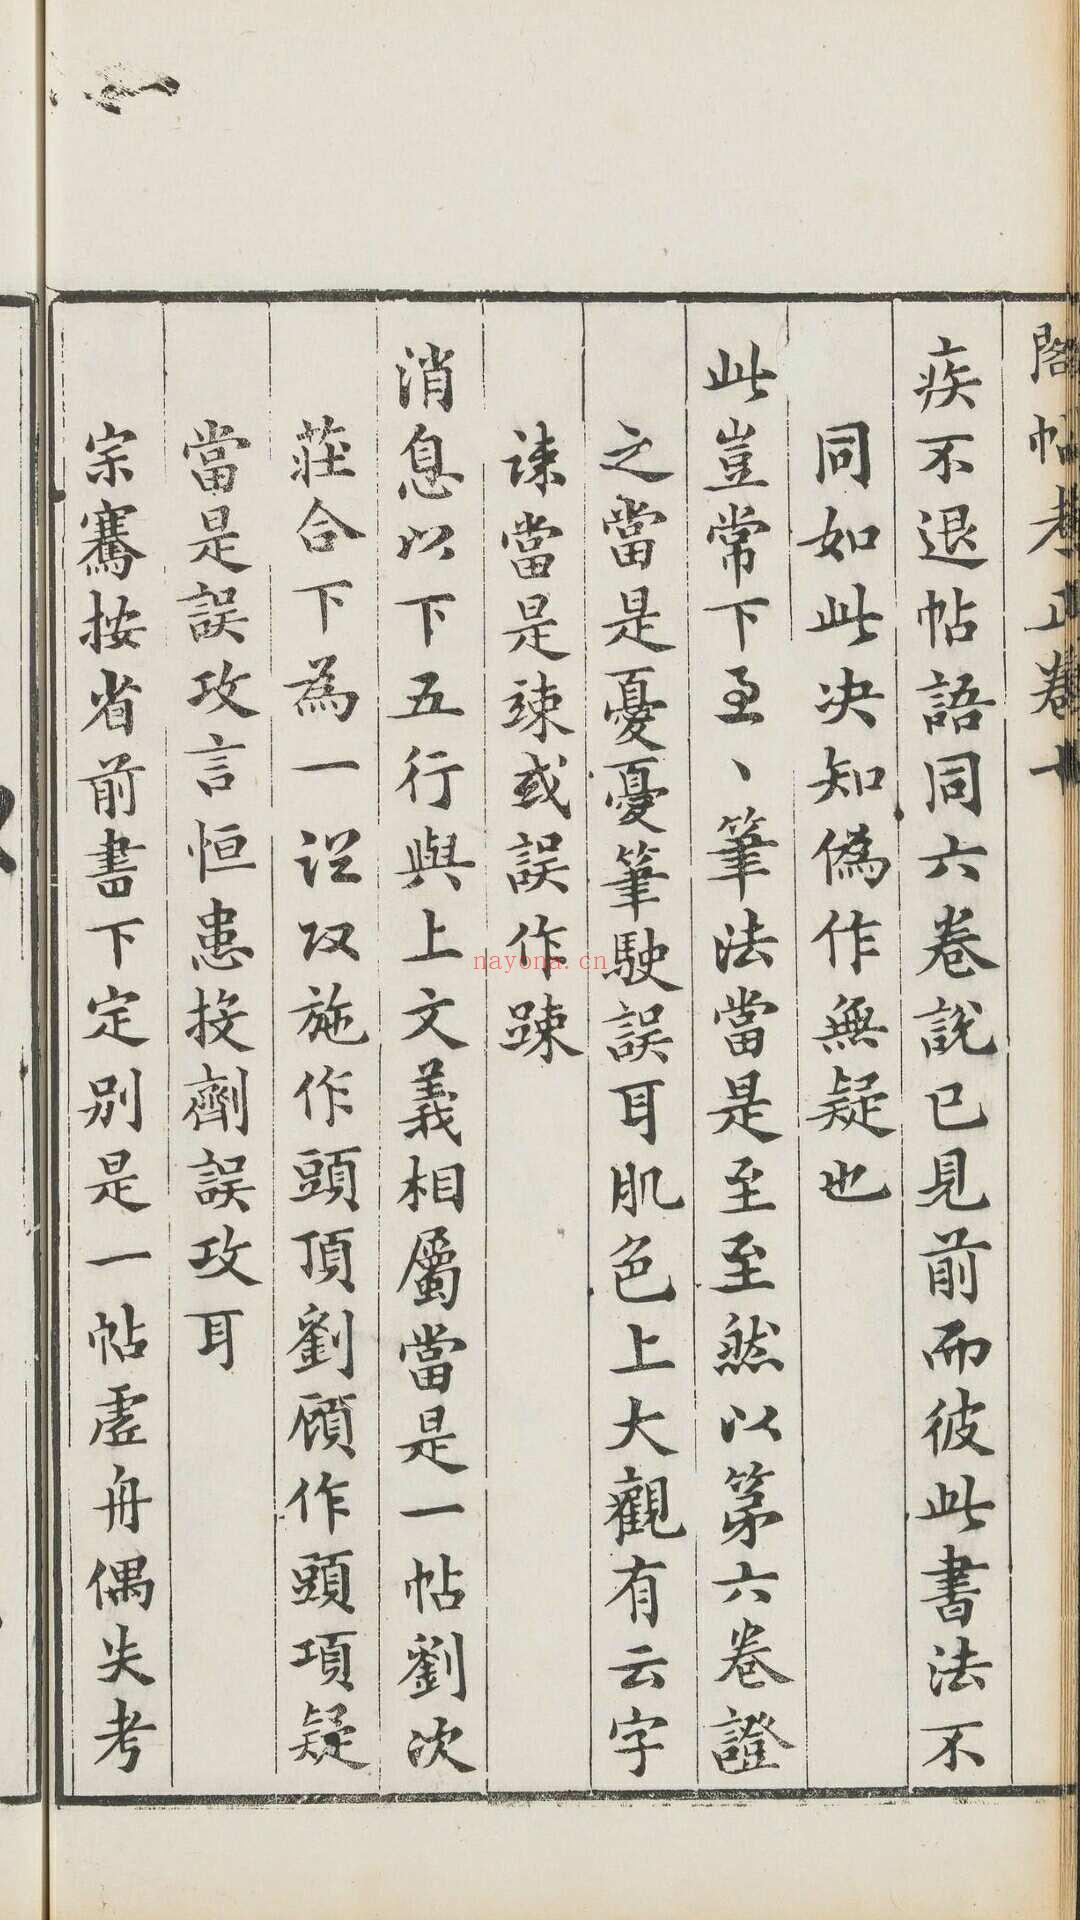 閣帖考正卷十
疾不退帖語同六卷說已見前而彼此書法不
同如此决知偽作無疑也
此豈常下至、筆法當是至至然以第六卷證
之當是憂憂筆駛誤耳肌色上大觀有云字
誎當是竦或誤作踈
消息以下五行與上文義相屬當是一帖劉次
莊合下為一誤攷施作頭頂劉顧作頭項疑
當是誤攻言恒患投劑誤攻耳
宗騫按省前書下定別是一帖虛舟偶失考
nayona.cn